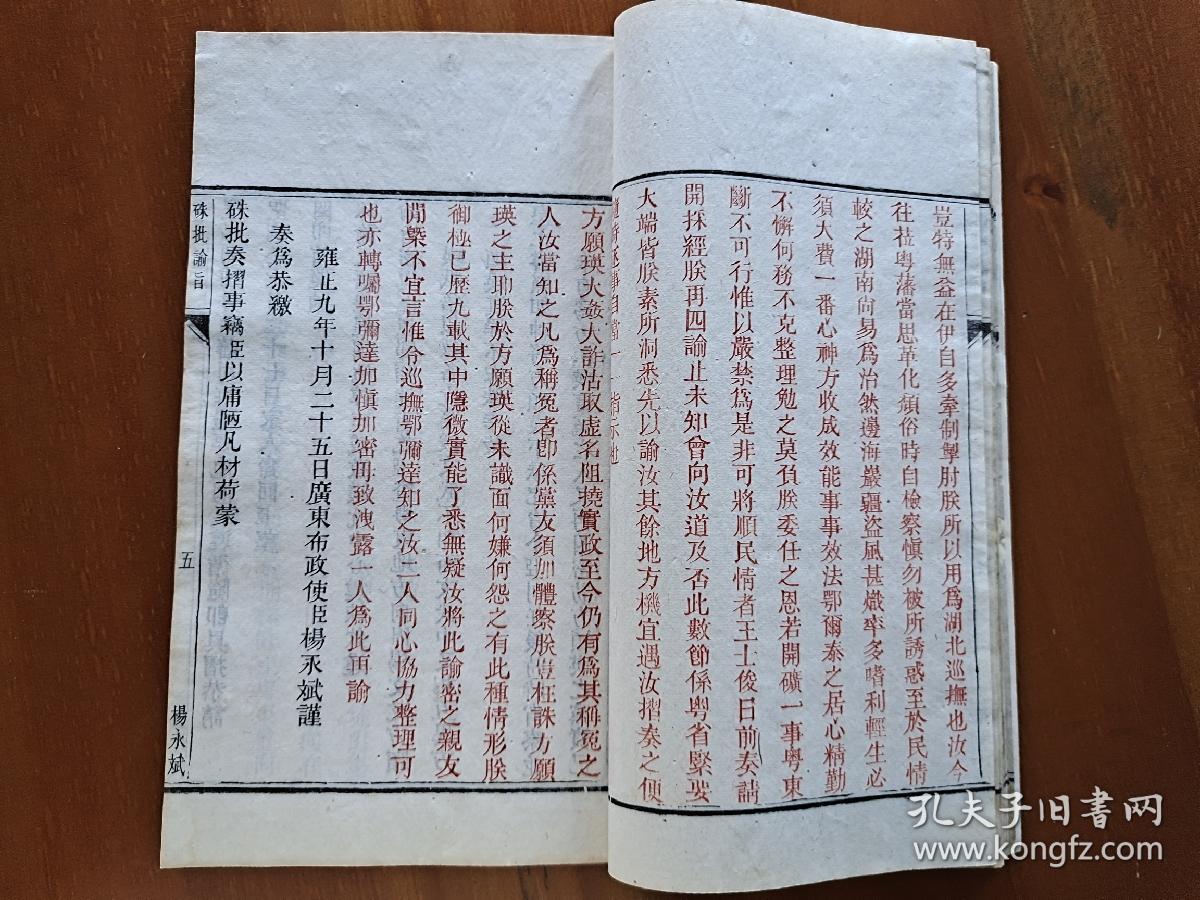 豈特無益在伊自多牽制掣肘朕所以用爲湖北巡撫也汝今
往莅粤藩當思革化頹俗時自檢察愼勿被所誘惑至於民情
較之湖南尙易爲治然邊海嚴疆盜風甚熾率多嗜利輕生必
須大費一番心神方收成效能事事效法鄂爾泰之居心精勤
不懈何務不克整理勉之莫負朕委任之恩若開礦一事粤東
斷不可行惟以嚴禁爲是非可將順民情者王士俊日前奏請
開採經朕再四諭止未知曾向汝道及否此數節係粤省緊要
大端皆朕素所洞悉先以諭汝其餘地方機宜遇汝摺奏之便
事自當一一指示也
方願瑛大姦大詐沽取虛名阻撓實政至今仍有爲其稱冤之
人汝當知之凡爲稱冤者卽係黨友須加體察朕豈枉誅方願
瑛之主耶朕於方願瑛從未識面何嫌何怨之有此種情形朕
御極已歷九載其中隱微實能了悉無疑汝將此諭密之親友
閒槩不宜言惟令巡撫鄂彌達知之汝二人同心協力整理可
也亦轉囑鄂彌達加愼加密毋致洩露一人爲此再諭
雍正九年十月二十五日廣東布政使臣楊永斌謹
奏爲恭繳
硃批奏摺事竊臣以庸陋凡材荷蒙
硃批諭旨
五
楊永斌
孔夫子旧书网
www.kongfz.com